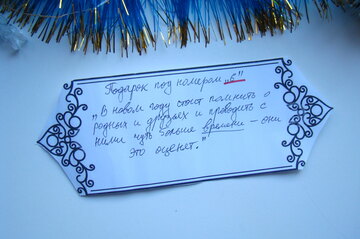 Подарок под номером „6"
„В новом году стоит помнить о
родных и друзьях и проводить с
ними чуть больше времени – они
это оценят."